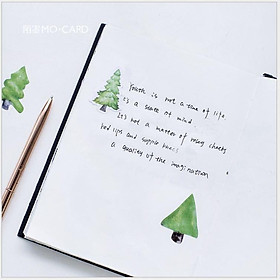 MO·CARD
Youth is not a time of life,
It's a state of mind
It's not a matter of rosy cheeks
red lips and supple knees
a quality of the imagination,